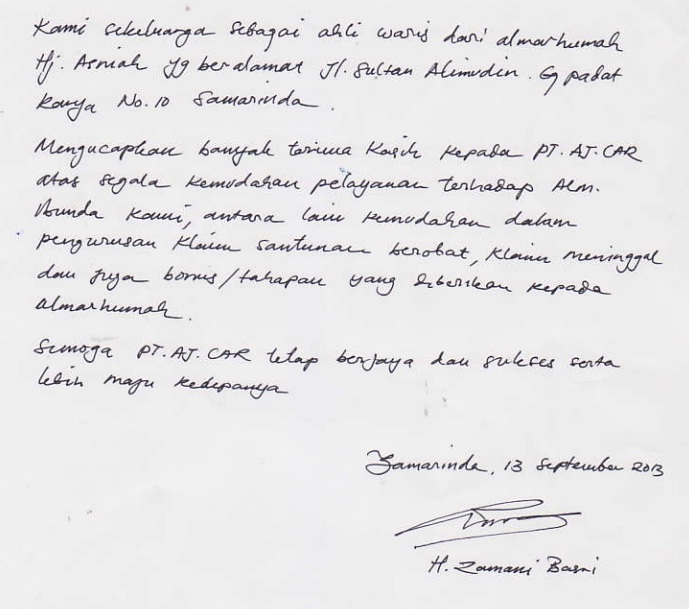 Kami sekeluarga sebagai ahli waris dari almarhumah
Hj. Asniah yg beralamat Jl. Sultan Alimudin. Gg padat
Karya No.10 Samarinda.
Mengucapkan banyak terima Kasih Kepada PT. AJ. CAR
atas segala kemudahan pelayanan terhadap Alm.
Ibunda Kami, antara lain kemudahan dalam
pengurusan Klaim santunan berobat, Klaim meninggal
dan juga bonus/tahapan yang diberikan kepada
almarhumah.
Semoga PT. AJ. CAR tetap berjaya dan sukses serta
lebih maju kedepanya
Samarinda, 13 September 2013
H. Zamani Basri